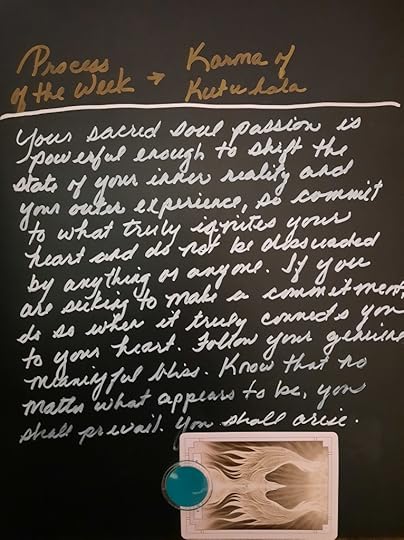 Process → Karma of
of the Week Kutuhala
Your sacred soul passion is
powerful enough to shift the
state of your inner reality and
your outer experience, so commit
to what truly ignites your
heart and do not be dissuaded
by anything or anyone. If you
are seeking to make a commitment
do so when it truly connects you
to your heart. Follow your genuine
meaningful bliss. Know that no
matter what appears to be, you
shall prevail. You shall arise.